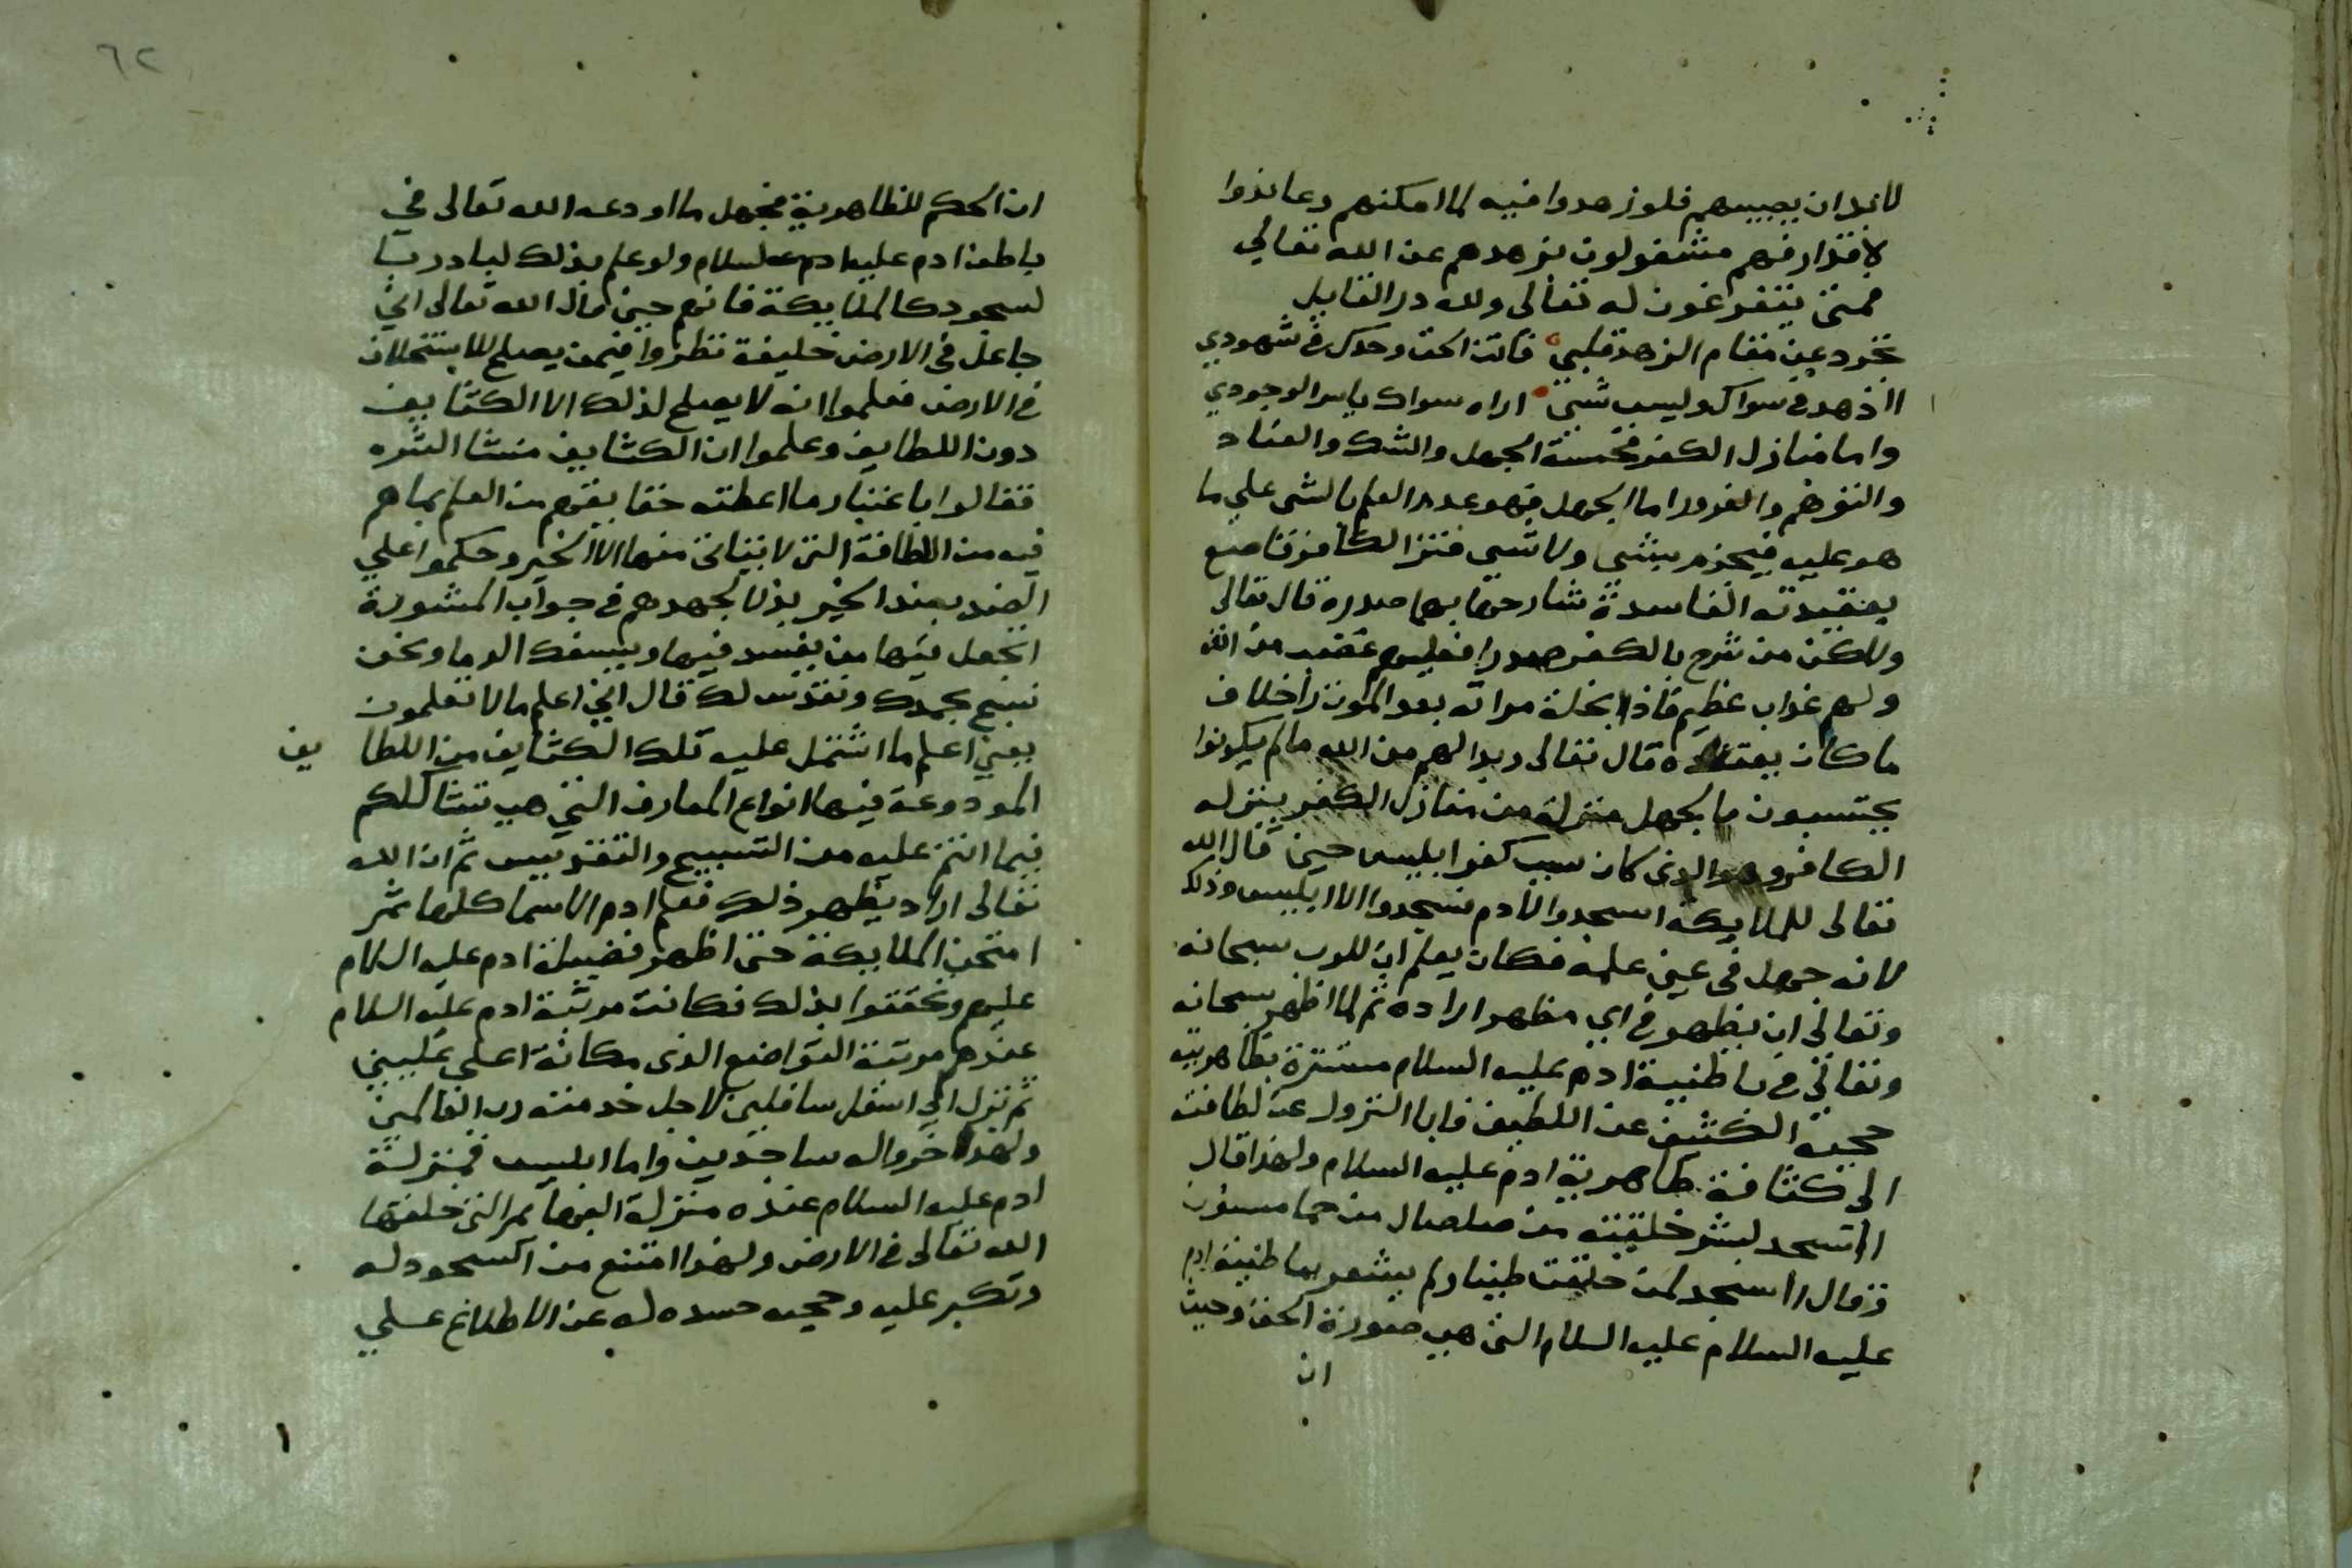 لا بد ان يصيبهم فلو زهدوا فيه لما امكنهم وعاندوا
لاقدار فهم مشغولون بزهدهم عن الله تعالي
فمتى يتفرغون له تعالى ولله در القايل
تجرد عن مقام الزهد قلبي فانت الحق وحدك في شهودي
اازهد في سواك وليس شئ اراه سواك ياسر الوجودي
واما منازل الكفر فخمسة الجهل والشك والعناد
والتوهم والغرور اما الجهل فهو عدم العلم بالشي علي ما
هو عليه فيجزم بشى ولا شى فترا الكافر قا صع
بعقيدته الفاسدة شارحا بها صدره قال تعالى
ولاكن من شرح بالكفر صدرا فعليهم غضب من الله
ولهم عذاب عظيم فاذا بخلة مراته بعد الموت راخلاف
ما كان يعتقده قال تعالى وبدا لهم من الله ما لم يكونوا
يحتسبون فالجهل منزلة من منازل الكفر ينزله
الكافر وهو الذى كان سبب كفر ابليس حين قال الله
تعالى للملايكة اسجدوا لادم فسجدوا الا ابليس وذلك
لانه جهل في عين علمه فكان يعلم ان للرب سبحانه
وتعالى ان يظهر في اي مظهر اراده ثم لما اظهر سبحانه
وتعالى في باطنية ادم عليه السلام مستترة بظاهريته
حجبه الكثيف عن اللطيف فابا النزول عن لطافته
الى كثافة ظاهرية ادم عليه السلام ولهذا قال
اا سجد لبشر خلقته من صلصال من حما مسنون
وقال ااسجد لمن خلقت طينا ولم يشعر بباطنية ادم
عليه السلام عليه السلام التى هي صورة الحق وحيث
ان
٦٢
ان الحكم للظاهرية فجهل ما اودعه الله تعالى في
باطن ادم عليه ادم عليه السلام ولو علم بذلك لبادر بـ
لسجود كالملايكة فانهم حين قال الله تعالى اني
جاعل في الارض خليفة نظروا فيمن يصلح للاستخلاف
في الارض فعلموا انه لا يصلح لذلك الا الكثايف
دون اللطايف وعلموا ان الكثايف منشا الشره
فقالوا باعتبار ما اعطته حقايقهم من العلم بما هم
فيه من اللطافة التى لا يتاتى منها الا الخير وحكموا على
الضد بضد الخير بذلا لجهدهم في جواب المشورة
اتجعل فيها من يفسد فيها ويسفك الدما ونحن
نسبح بحمدك ونقدس لك قال اني اعلم ما لا تعلمون
يعني اعلم ما اشتمل عليه تلك الكثايف من اللطا يف
المودوعة فيها انواع المعارف التي هي تشاكلكم
فيما انتم عليه من التسبيح والتقديس ثم ان الله
تعالى اراد يظهر ذلك فعلم ادم الاسما كلها ثم
امتحن الملايكة حتى اظهر فضيلة ادم عليه السلام
عليهم وتحققوا بذلك فكانت مرتبة ادم عليه السلام
عندهم مرتبة التواضع الذى مكانه اعلى عليين
ثم نزل الى اسفل سافلين لاجل خدمته رب العالمين
ولهذا خروا له ساجدين واما ابليس فمنزلة
ادم عليه السلام عنده منزلة البهايم التى خلقها
الله تعالى في الارض ولهذا امتنع من السجود له
وتكبر عليه وحجبه حسده له عن الاطلاع على